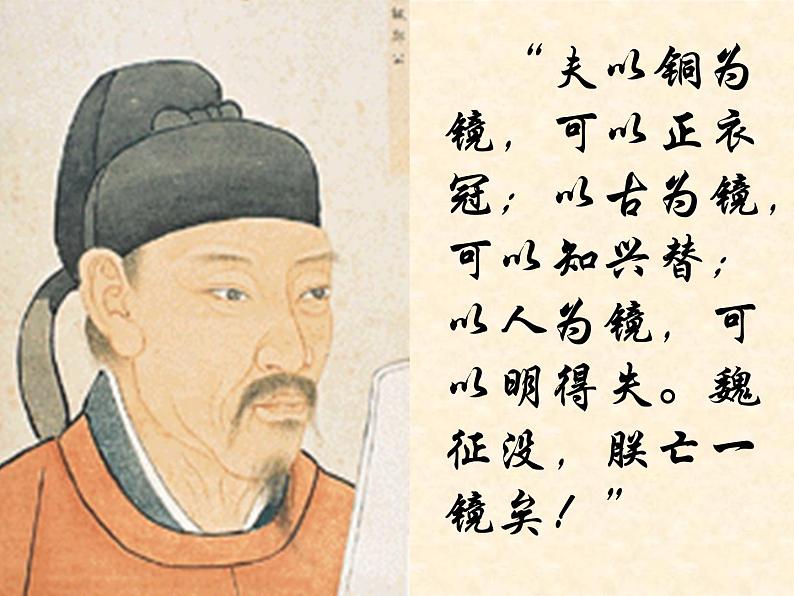 “夫以铜为
镜，可以正衣
冠；以古为镜，
可以知兴替；
以人为镜，可
以明得失。魏
征没，朕亡一
镜矣！”